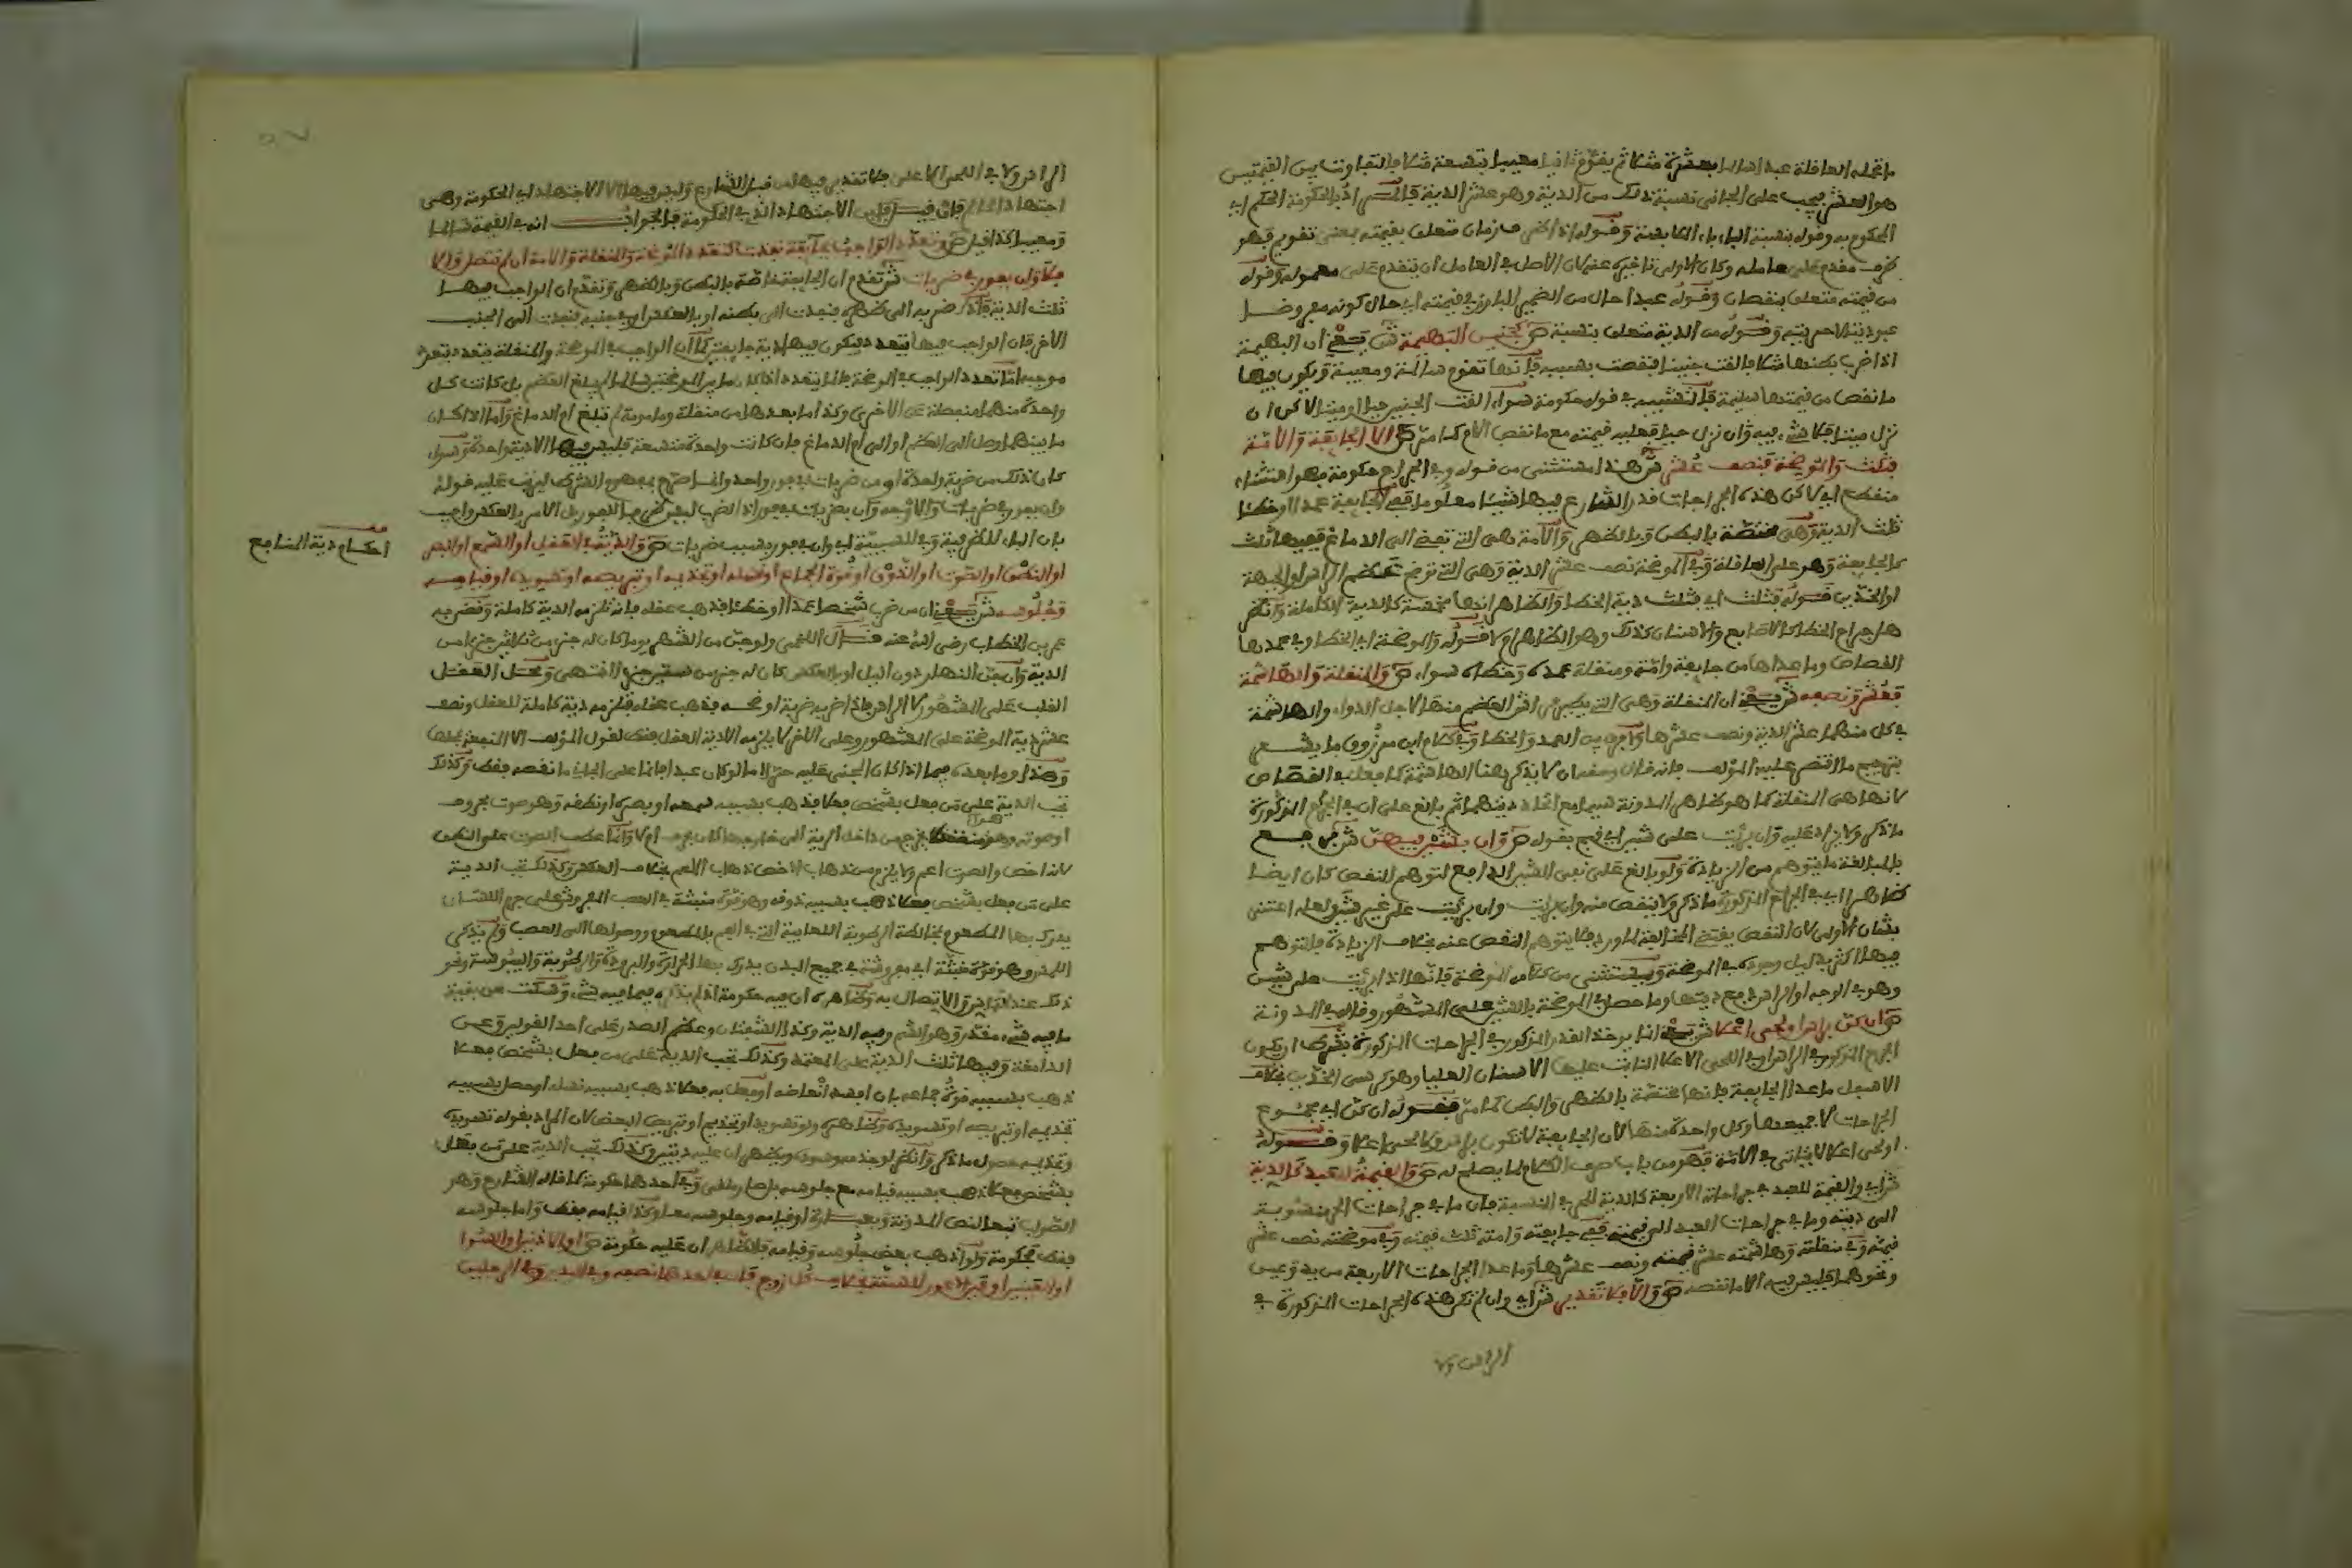 ما تحمله العاقلة عبدا سالما بعشرة مثلا ثم يقوم ثانيا معيبا بتسعة مثلا فالتفاوت بين القيمتين
هو العشر فيجب على الجاني نسبة ذلك من الدية وهو عشر الدية
المحكوم به وقوله بنسبة الباء
ظرف مقدم على عامله وكان الاولى تاخيره عنه لان الاصل في العامل ان يتقدم على معموله وقوله
من قيمته متعلق بنقصان وقوله عبدا حال من الضمير البارز في قيمته اي حال كونه مفروضا
عبوديته لا حريته وقوله من الدية متعلق بنسبة ص كجنين البهيمة ش يعني ان البهيمة
اذا ضرب بطنها مثلا فالقت جنينا فنقصت بسببه فانها تقوم سالمة ومعيبة ويكون فيها
ما نقص من قيمتها سليمة فالتشبيه في قوله حكومة سواء القت الجنين حيا او ميتا لاكن ان
نزل ميتا فلا شيء فيه وان نزل حيا فعليه قيمته مع ما نقص الام كما مر ص الا الجايفة والامة
فثلث والموضحة فنصف عشر ش هذا مستثنى من قوله وفي الجراح حكومة فهو استثناء
منقطع اي لاكن هذه الجراحات قدر الشارع فيها شيئا معلوما ففي الجايفة عمدا او خطئا
ثلث الدية وهي مختصة بالبطن وبالظهر والامة هي التي تفضي الى الدماغ ففيها ثلث
كالجايفة وهو على العاقلة وفي الموضحة نصف عشر الدية وهي التي توضح عظم الراس او الجبهة
او الخدين فقوله فثلث اي فثلث دية الخطا والظاهر انها مخمسة كالدية الكاملة وانظر
هل جراح الخطا كالاصابع والاسنان كذلك وهو الظاهر ام لا قوله والموضحة اي الخطا وفي عمدها
القصاص وما عداها من جايفة وامة ومنقلة عمده وخطاه سواء ص والمنقلة والهاشمة
فعشر ونصفه ش يعني ان المنقلة وهي التي يطير فراش العظم منها لاجل الدواء والهاشمة
في كل منهما عشر الدية ونصف عشرها ولا فرق بين العمد والخطا وفي كلام ابن مرزوق ما يشعر
بترجيح ما اقتصر عليه المؤلف فانه قال وحقه ان لا يذكر هنا الهاشمة كما فعل في القصاص
لانها هي المنقلة كما هو ظاهر المدونة سيما مع اتحاد ديتهما ثم بالغ على ان في الجراح المذكورة
ما ذكر ولا يزاد عليه وان برئت على شين اي قبح بقوله ص وان بشين فيهن ش دفع
بالمبالغة ما يتوهم من الزيادة ولو بالغ على نفي الشين الدافع لتوهم النقص كان ايضا
ظاهرا اي في الجراح المذكورة ما ذكر ولا ينقص منه وان برئت على غير شين ولعله اعتنى
بشان الاولى لان النقص يقتضي المخالفة للوارد فلا يتوهم النقص عنه بخلاف الزيادة فالتوهم
فيها اكثر بدليل وجوده في الموضحة ويستثنى من كلامه الموضحة فانها اذا برئت على شين
وهو في الوجه او الراس دفع ديتها وما حصل في الموضحة بالشين على المشهور وقاله في المدونة
ص ان كن براس او لحى اعلا ش يعني انما يوخذ القدر المذكور في الجراحات المذكورة بشرط ان يكون
الجرح المذكور في الراس او في اللحى الاعلا النابت عليها الاسنان العليا وهو كرسي الخد بخلاف
الاسفل ما عدا الجايفة فانها مختصة بالظهر والبطن كما مر فقوله ان كن اي مجموع
الجراحات لا جميعها وكل واحدة منها لان الجايفة لا تكون براس ولا لحى اعلا وقوله
او لحى اعلا لا ياتي في الامة فهو من باب صرف الكلام لما يصلح له ص والقيمة للعبد كالدية
ش اي والقيمة للعبد في جراحاته الاربعة كالدية للحر في النسبة فان ما في جراحات الحر منسوبة
الى ديته وما في جراحات العبد الى قيمته ففي جايفته وامته ثلث قيمته وفي موضحته نصف عشر
قيمته وفي منقلته وهاشمته عشر قيمته ونصف عشرها وما عدا الجراحات الاربعة من يد وعين
ونحوهما فليس فيه الا ما نقصه ص والا فلا تقدير ش اي وان لم تكن هذه الجراحات المذكورة في
الراس ولا
الراس ولا في اللحى الاعلى فلا تقدير فيها من قبل الشارع وليس فيها الا الاجتهاد اي الحكومة وهي
اجتهاد الحاكم فان قيل فاين الاجتهاد الذي في الحكومة فالجواب انه في القيمة سالما
ومعيبا كذا قيل ص وتعدد الواجب بجايفة نفذت كتعدد الموضحة والمنقلة والامة ان لم تتصل والا
فلا وان بفور في ضربات ش تقدم ان الجايفة خاصة بالبطن وبالظهر وتقدم ان الواجب فيها
ثلث الدية فاذا ضربه الى ظهره فنفذت الى بطنه او بالعكس او في جنبه فنفذت الى الجنب
الاخر فان الواجب فيها يتعدد فيكون فيها دية جايفتين كما ان الواجب في الموضحة والمنقلة يتعدد بتعدد
موجبه
واحدة منهما منفصلة عن الاخرى وكذا ما بعدها من منقلة ومامومة لم تبلغ ام الدماغ واما ان كان
ما بينهما وصل الى العظم او الى ام الدماغ فان كانت واحدة متسعة فليس فيها الا دية واحدة وسواء
كان ذلك من ضربة واحدة او من ضربات في فور واحد وانما صرح بمفهوم الشرط ليرتب عليه قوله
وان بفور في ضربات
بان الباء للظرفية وفي للسببية اي وان في فور بسبب ضربات ص والدية في العقل او السمع او البصر
او النطق او الصوت او الذوق او قوة الجماع او نسله او تجذيمه او تبريصه او تسويده او قيامه
وجلوسه ش يعني ان من ضرب شخصا عمدا او خطئا فذهب عقله فانه تلزمه الدية كاملة وقضى به
عمر بن الخطاب رضي الله عنه قال اللخمي ولو جن من الشهر يوما كان له جزء من ثلاثين جزءا من
الدية وان جن النهار دون الليل او بالعكس كان له جزء من ستين جزءا انتهى ومحل العقل
القلب على المشهور لا الراس فاذا ضربه ضربة او ضحه فذهب عقله فتلزمه دية كاملة للعقل ونصف
عشر دية الموضحة على المشهور وعلى الاخر لا يلزمه الا دية العقل فقط لقول المؤلف الا المنفعة بمحلها
وهذا وما بعده فيما اذا كان المجني عليه حرا اما لو كان عبدا فانما على الجاني ما نقصه فقط وكذلك
تجب الدية على من فعل بشخص فعلا فذهب بسببه سمعه او بصره او نطقه وهو صوت بحروف
او صوته وهو هواء منضغط يخرج من داخل الرية الى خارجها كان بحرف ام لا وانما عطف الصوت على النطق
لانه اخص والصوت اعم ولا يلزم من ذهاب الاخص ذهاب الاعم بخلاف العكس وكذلك تجب الدية
على من فعل بشخص فعلا ذهب بسببه ذوقه وهو قوة منبثة في العصب المفروش على جرم اللسان
يدرك بها الطعوم بمخالطة الرطوبة اللعابية التي في الفم بالمطعوم ووصولها الى العصب ولم يذكر
اللمس وهو قوة منبثة اي مفروشة في جميع البدن يدرك بها الحرارة والبرودة والرطوبة واليبوسة ونحو
ذلك عند التماس والاتصال به وظاهره ان فيه حكومة اذ لم يذكره فيما فيه شيء وسكت عن بقية
ما فيه شيء مقدر وهو الشم وفيه الدية وكذا الشفتان وعظم الصدر على احد القولين وعن
الدامغة وفيها ثلث الدية على المعتمد وكذلك تجب الدية على من فعل بشخص فعلا
ذهب بسببه قوة جماعه بان افسد انعاظه او فعل به فعلا ذهب بسببه نسله او حصل بسببه
تجذيمه او تبريصه او تسويده
وتجذيمه حصول ما ذكر
بشخص فعلا ذهب بسببه قيامه مع جلوسه
الصواب تبعا لنص المدونة
فقط فحكومة ولو اذهب بعض جلوسه وقيامه فالظاهر ان عليه حكومة ص او الاذنين او الشوا
او العينين او عين الاعور للسنة بخلاف كل زوج فان في احدهما نصفه وفي اليدين وفي الرجلين
احكام دية المنافع